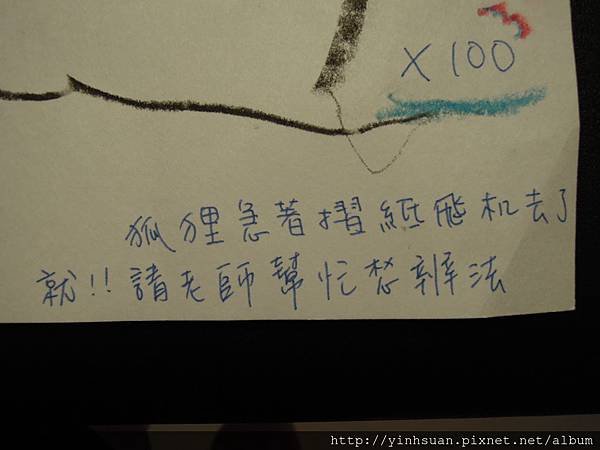 X 100
狐狸急著摺紙飛机去了
就!!請老師幫忙想辦法
http://yinhsuan.pixnet.net/album